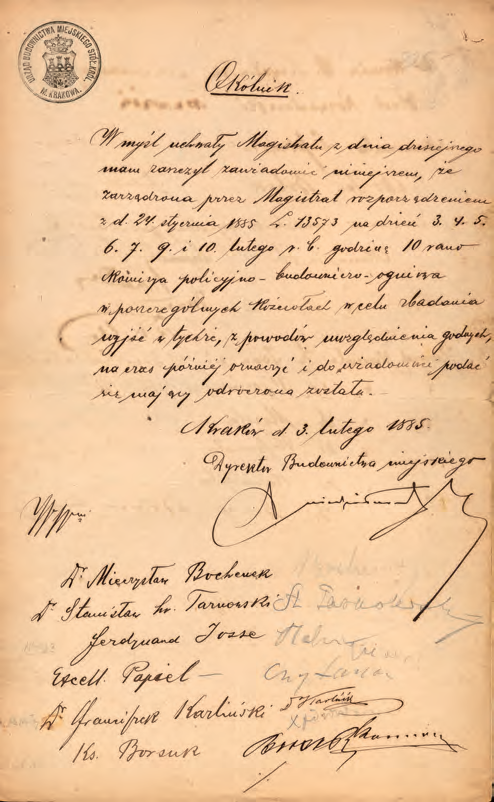 URZĄD BUDOWNICTWA MIEJSKIEGO STOŁ. KRÓL. M. KRAKOWA.
Okólnik.
W myśl uchwały Magistratu z dnia dzisiejszego
mam zaszczyt zawiadomić niniejszem, że
zarządzona przez Magistrat rozporządzeniem
z d. 24 stycznia 1885 L. 13573 na dzień 3. 4. 5.
6. 7. 9. i 10. lutego r. b. godzinę 10 rano
Komisya policyjno-budowniczo-ogniowa
w poszczególnych Kościołach w celu zbadania
wyjść z tychże, z powodów uwzględnienia godnych,
na czas później oznaczyć i do wiadomości podać
się mający odroczoną została.
Kraków d 3. lutego 1885.
Dyrektor Budownictwa miejskiego
Dr Mieczysław Bochenek
Dr Stanisław hr. Tarnowski
Ferdynand Josse
Excell. Papieł
Dr Franciszek Karliński
Ks. Borsuk